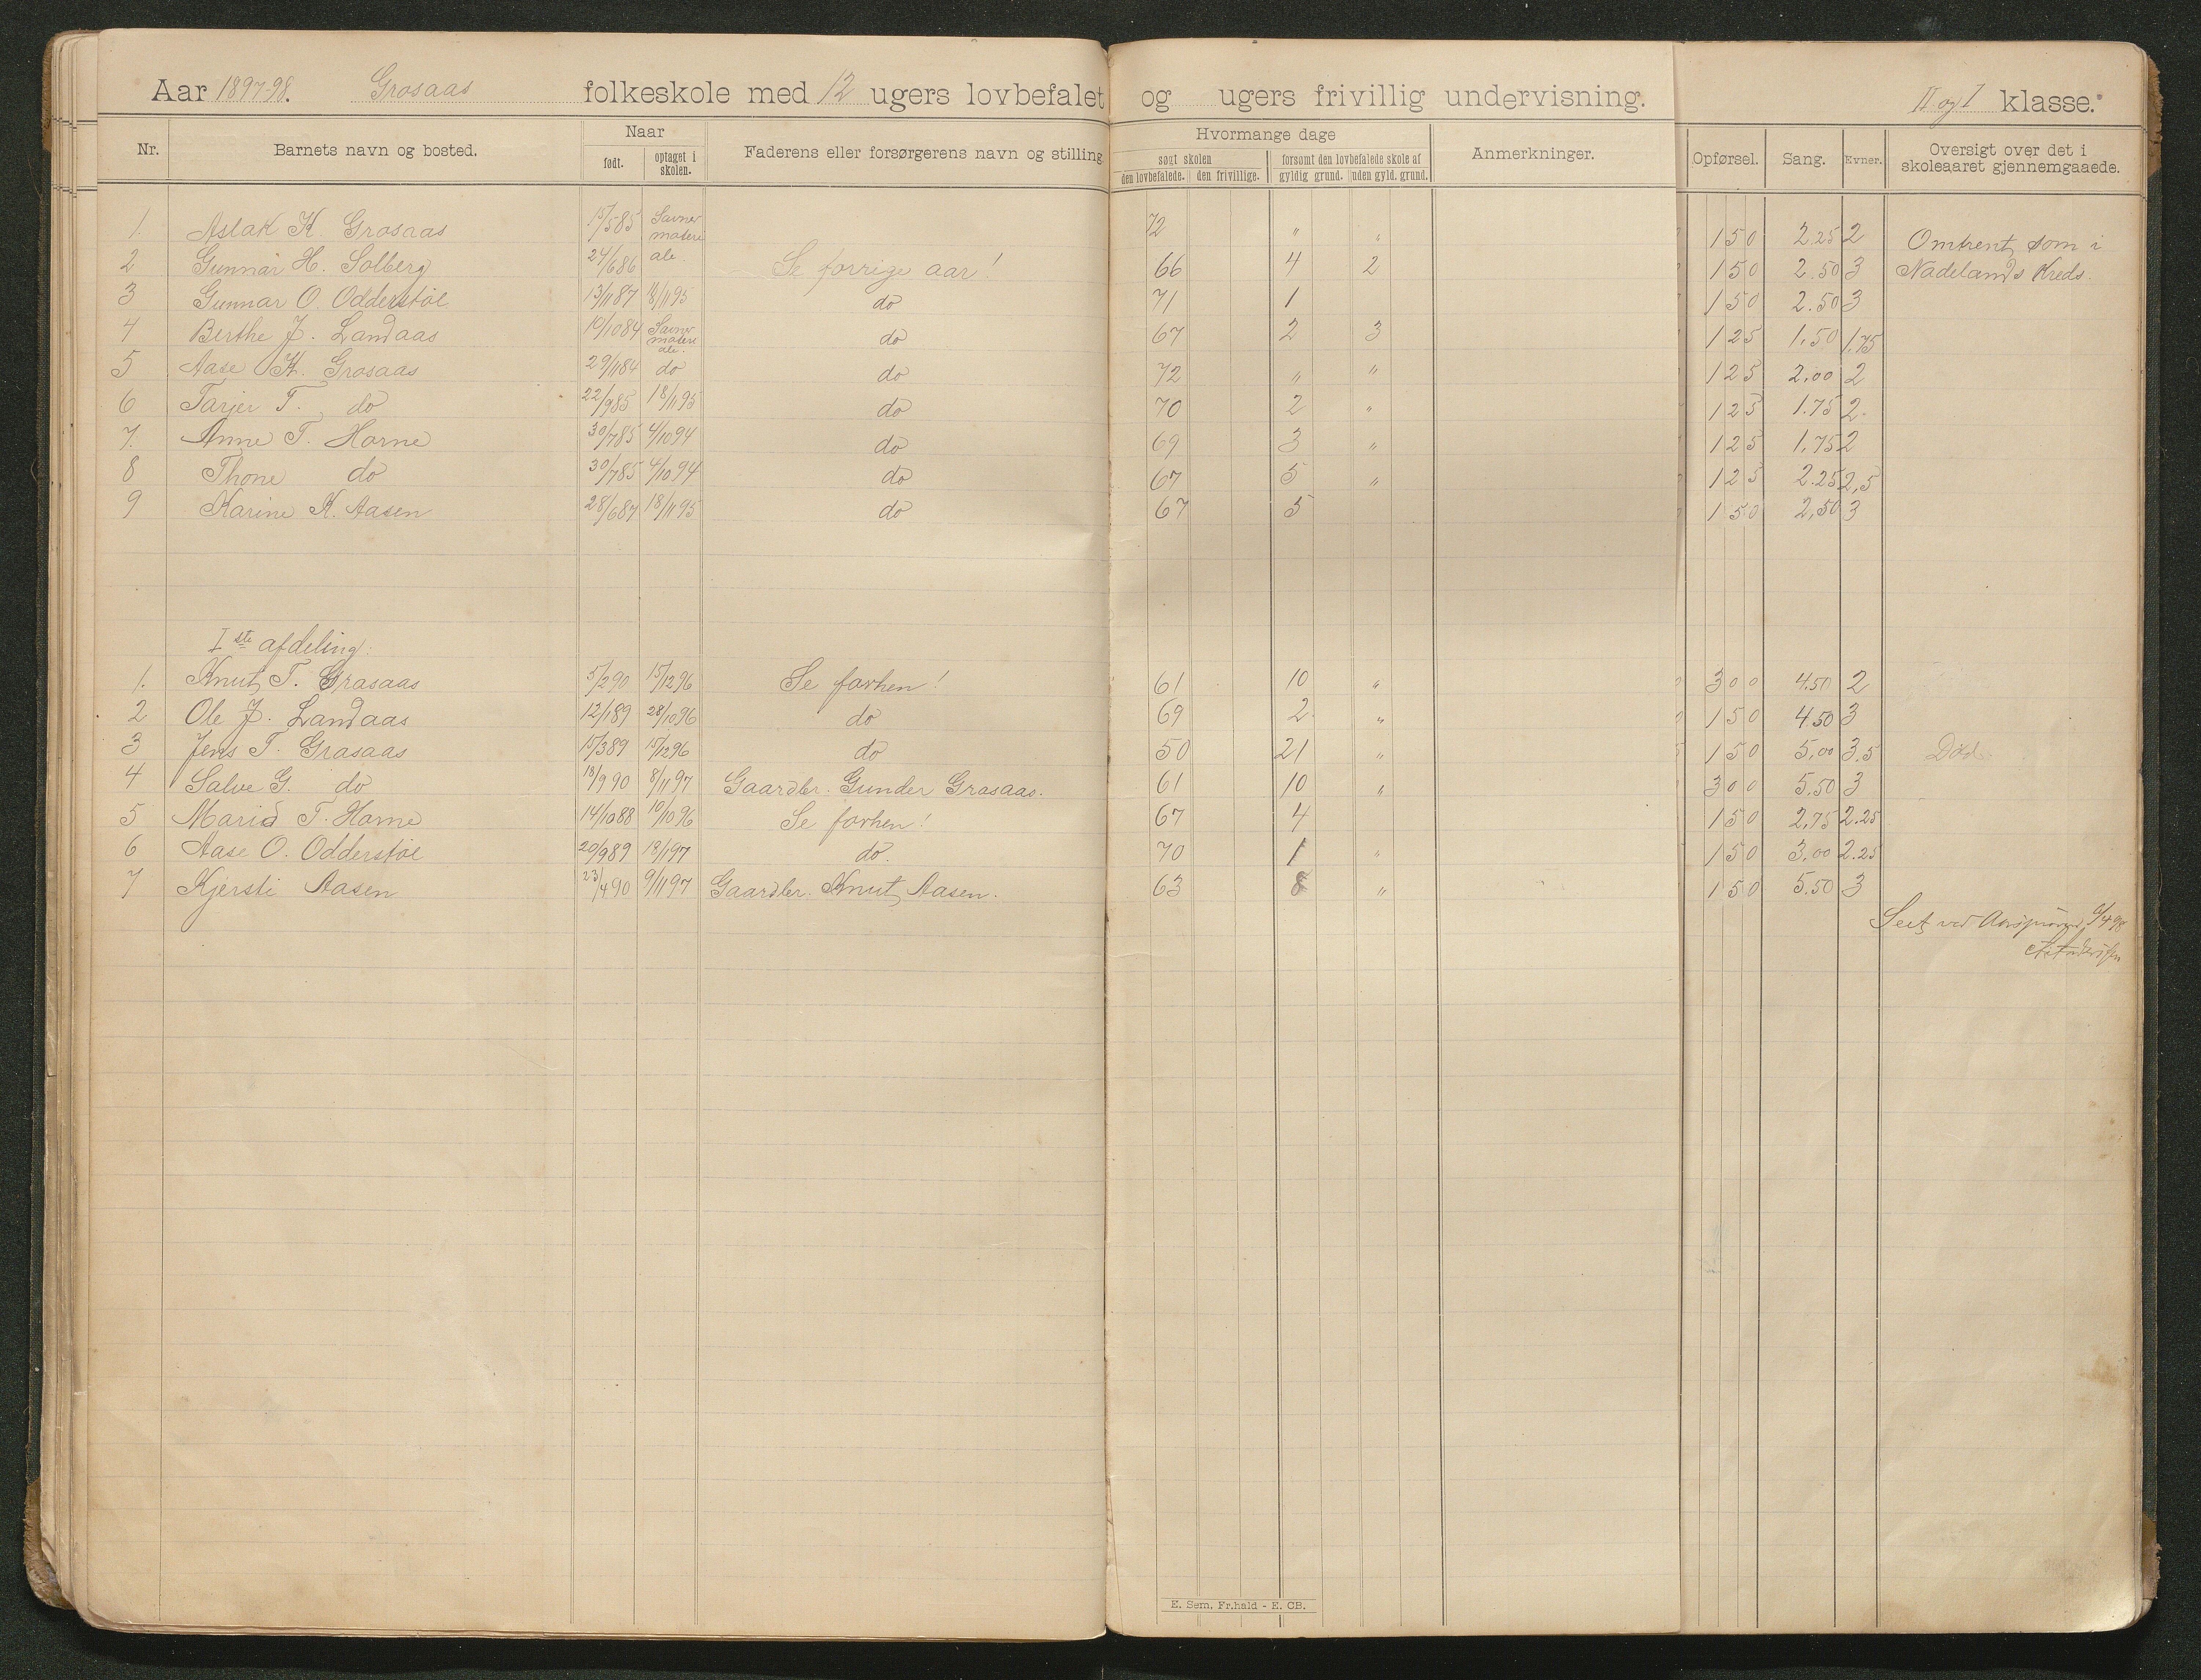 Aar 1897-98. Grosaas folkeskole med 12 ugers lovbefalet og ugers frivillig undervisning. II og I klasse.
Nr. Barnets navn og bosted. Naar født. optaget i skolen. Faderens eller forsørgerens navn og stilling Hvormange dage søgt skolen den lovbefalede. den frivillige. forsømt den lovbefalede skole af gyldig grund. uden gyld. grund. Anmerkninger. Opførsel. Sang. Evner. Oversigt over det i skoleaaret gjennemgaaede.
1. Aslak K. Grosaas 15/5 85 Savner materiale. 72 " " 150 2.25 2 Omtrent som i
2 Gunnar H. Solberg 24/6 86 Se forrige aar! 66 4 2 150 2.50 3 Nadelands Kreds.
3 Gunnar O. Odderstøl 13/11 87 18/11 95 do 71 1 150 2.50 3
4 Berthe J. Landaas 10/10 84 Savner materiale. do 67 2 3 125 1.50 1.75
5 Aase K. Grosaas 29/11 84 do do 72 " " 125 2.00 2
6 Tarjer T. do 22/9 85 18/11 95 do 70 2 " 125 1.75 2.
7. Anne T. Horne 30/7 85 4/10 94 do 69 3 " 125 1.75 2
8 Thone do 30/7 85 4/10 94 do 67 5 " 125 2.25 2,5
9 Karine K. Aasen 28/6 87 18/11 95 do 67 5 150 2,50 3
I ste afdeling.
1. Knut T. Grosaas 5/2 90 15/12 96 Se forhen! 61 10 " 300 4.50 2
2 Ole J. Landaas 12/1 89 28/10 96 do 69 2 " 150 4.50 3
3 Jens T. Grosaas 15/3 89 15/12 96 do 50 21 " 150 5,00 3.5 Død.
4 Salve G. do 18/9 90 8/11 97 Gaardbr. Gunder Grosaas. 61 10 " 300 5.50 3
5 Maria T. Horne 14/10 88 10/10 96 Se forhen! 67 4 150 2,75 2.25
6 Aase O. Odderstøl 20/9 89 18/1 97 do. 70 1 " 150 3.00 2.25
7 Kjersti Aasen 23/4 90 9/11 97 Gaardbr. Knut Aasen. 63 8 " 150 5.50 3
Seet ved 6/4 98
E. Sem, Fr.hald - E. CB.